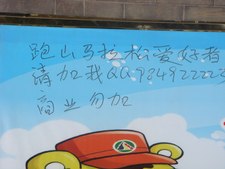 跑山马拉松爱好者
请加我QQ984922223
商业勿加